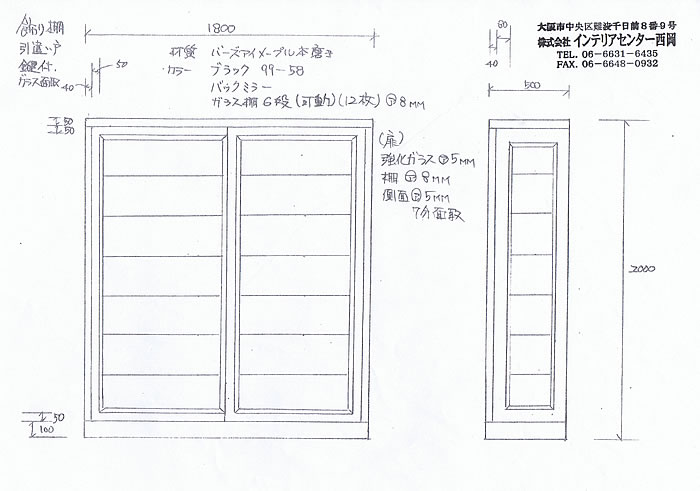 飾り棚
引違い戸
鍵付.
ガラス面取
40
50
1800
材質 バーズアイメープル本磨き
カラー ブラック 99-58
バックミラー
ガラス棚 6段 (可動) (12枚) ㋐8MM
60
40
大阪市中央区難波千日前8番9号
株式会社 インテリアセンター西岡
TEL. 06-6631-6435
FAX. 06-6648-0932
500
50
50
(扉)
強化ガラス ㋐5MM
棚 ㋐8MM
側面 ㋐5MM
7分面取
2000
50
100